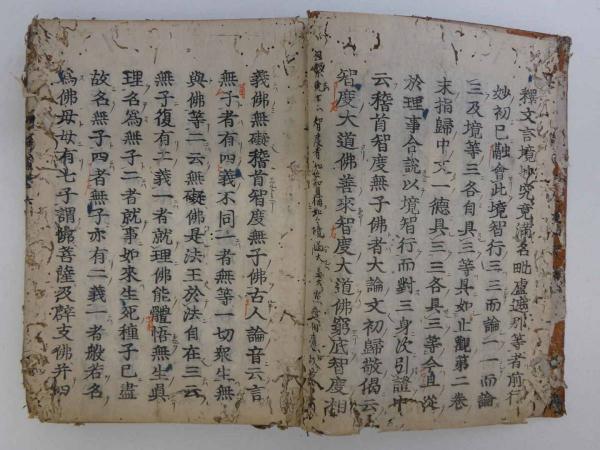 釋文言境妙究竟滿名毗盧遮那等者前行
妙初已融會此境智行三三而論一一而論
三及境等三各自具三等具如止觀第二卷
末指歸中文一德具三三各具三等今直從
於理事合說以境智行而對三身次引證中
云稽首智度無子佛者大論文初歸敬偈云
智度大道佛善來智度大道佛窮底智度相
義佛無礙稽首智度無子佛古人論音云言
無子者有四義不同一者無等一切衆生無
與佛等二云無礙佛是法王於法自在三云
無子復有二義一者就理佛能體悟無生眞
理名爲無子二者就事如來生死種子已盡
故名無子四者無子亦有二義一者般若名
爲佛母母有七子謂佛菩薩及辟支佛并四